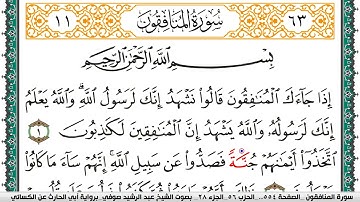 ٦٣ سُورَةُ المُنَافِقُونَ ١١
بِسْمِ اللَّهِ الرَّحْمَٰنِ الرَّحِيمِ
إِذَا جَآءَكَ ٱلْمُنَٰفِقُونَ قَالُوا۟ نَشْهَدُ إِنَّكَ لَرَسُولُ ٱللَّهِۗ وَٱللَّهُ يَعْلَمُ
إِنَّكَ لَرَسُولُهُۥ وَٱللَّهُ يَشْهَدُ إِنَّ ٱلْمُنَٰفِقِينَ لَكَٰذِبُونَ ١
ٱتَّخَذُوٓا۟ أَيْمَٰنَهُمْ جُنَّةً فَصَدُّوا۟ عَن سَبِيلِ ٱللَّهِۚ إِنَّهُمْ سَآءَ مَا كَانُوا۟
سورة المنافقون . الصفحة ٥٥٤ . الحزب ٥٦ . الجزء ٢٨ . بصوت الشيخ عبد الرشيد صوفي . برواية أبي الحارث عن الكسائي